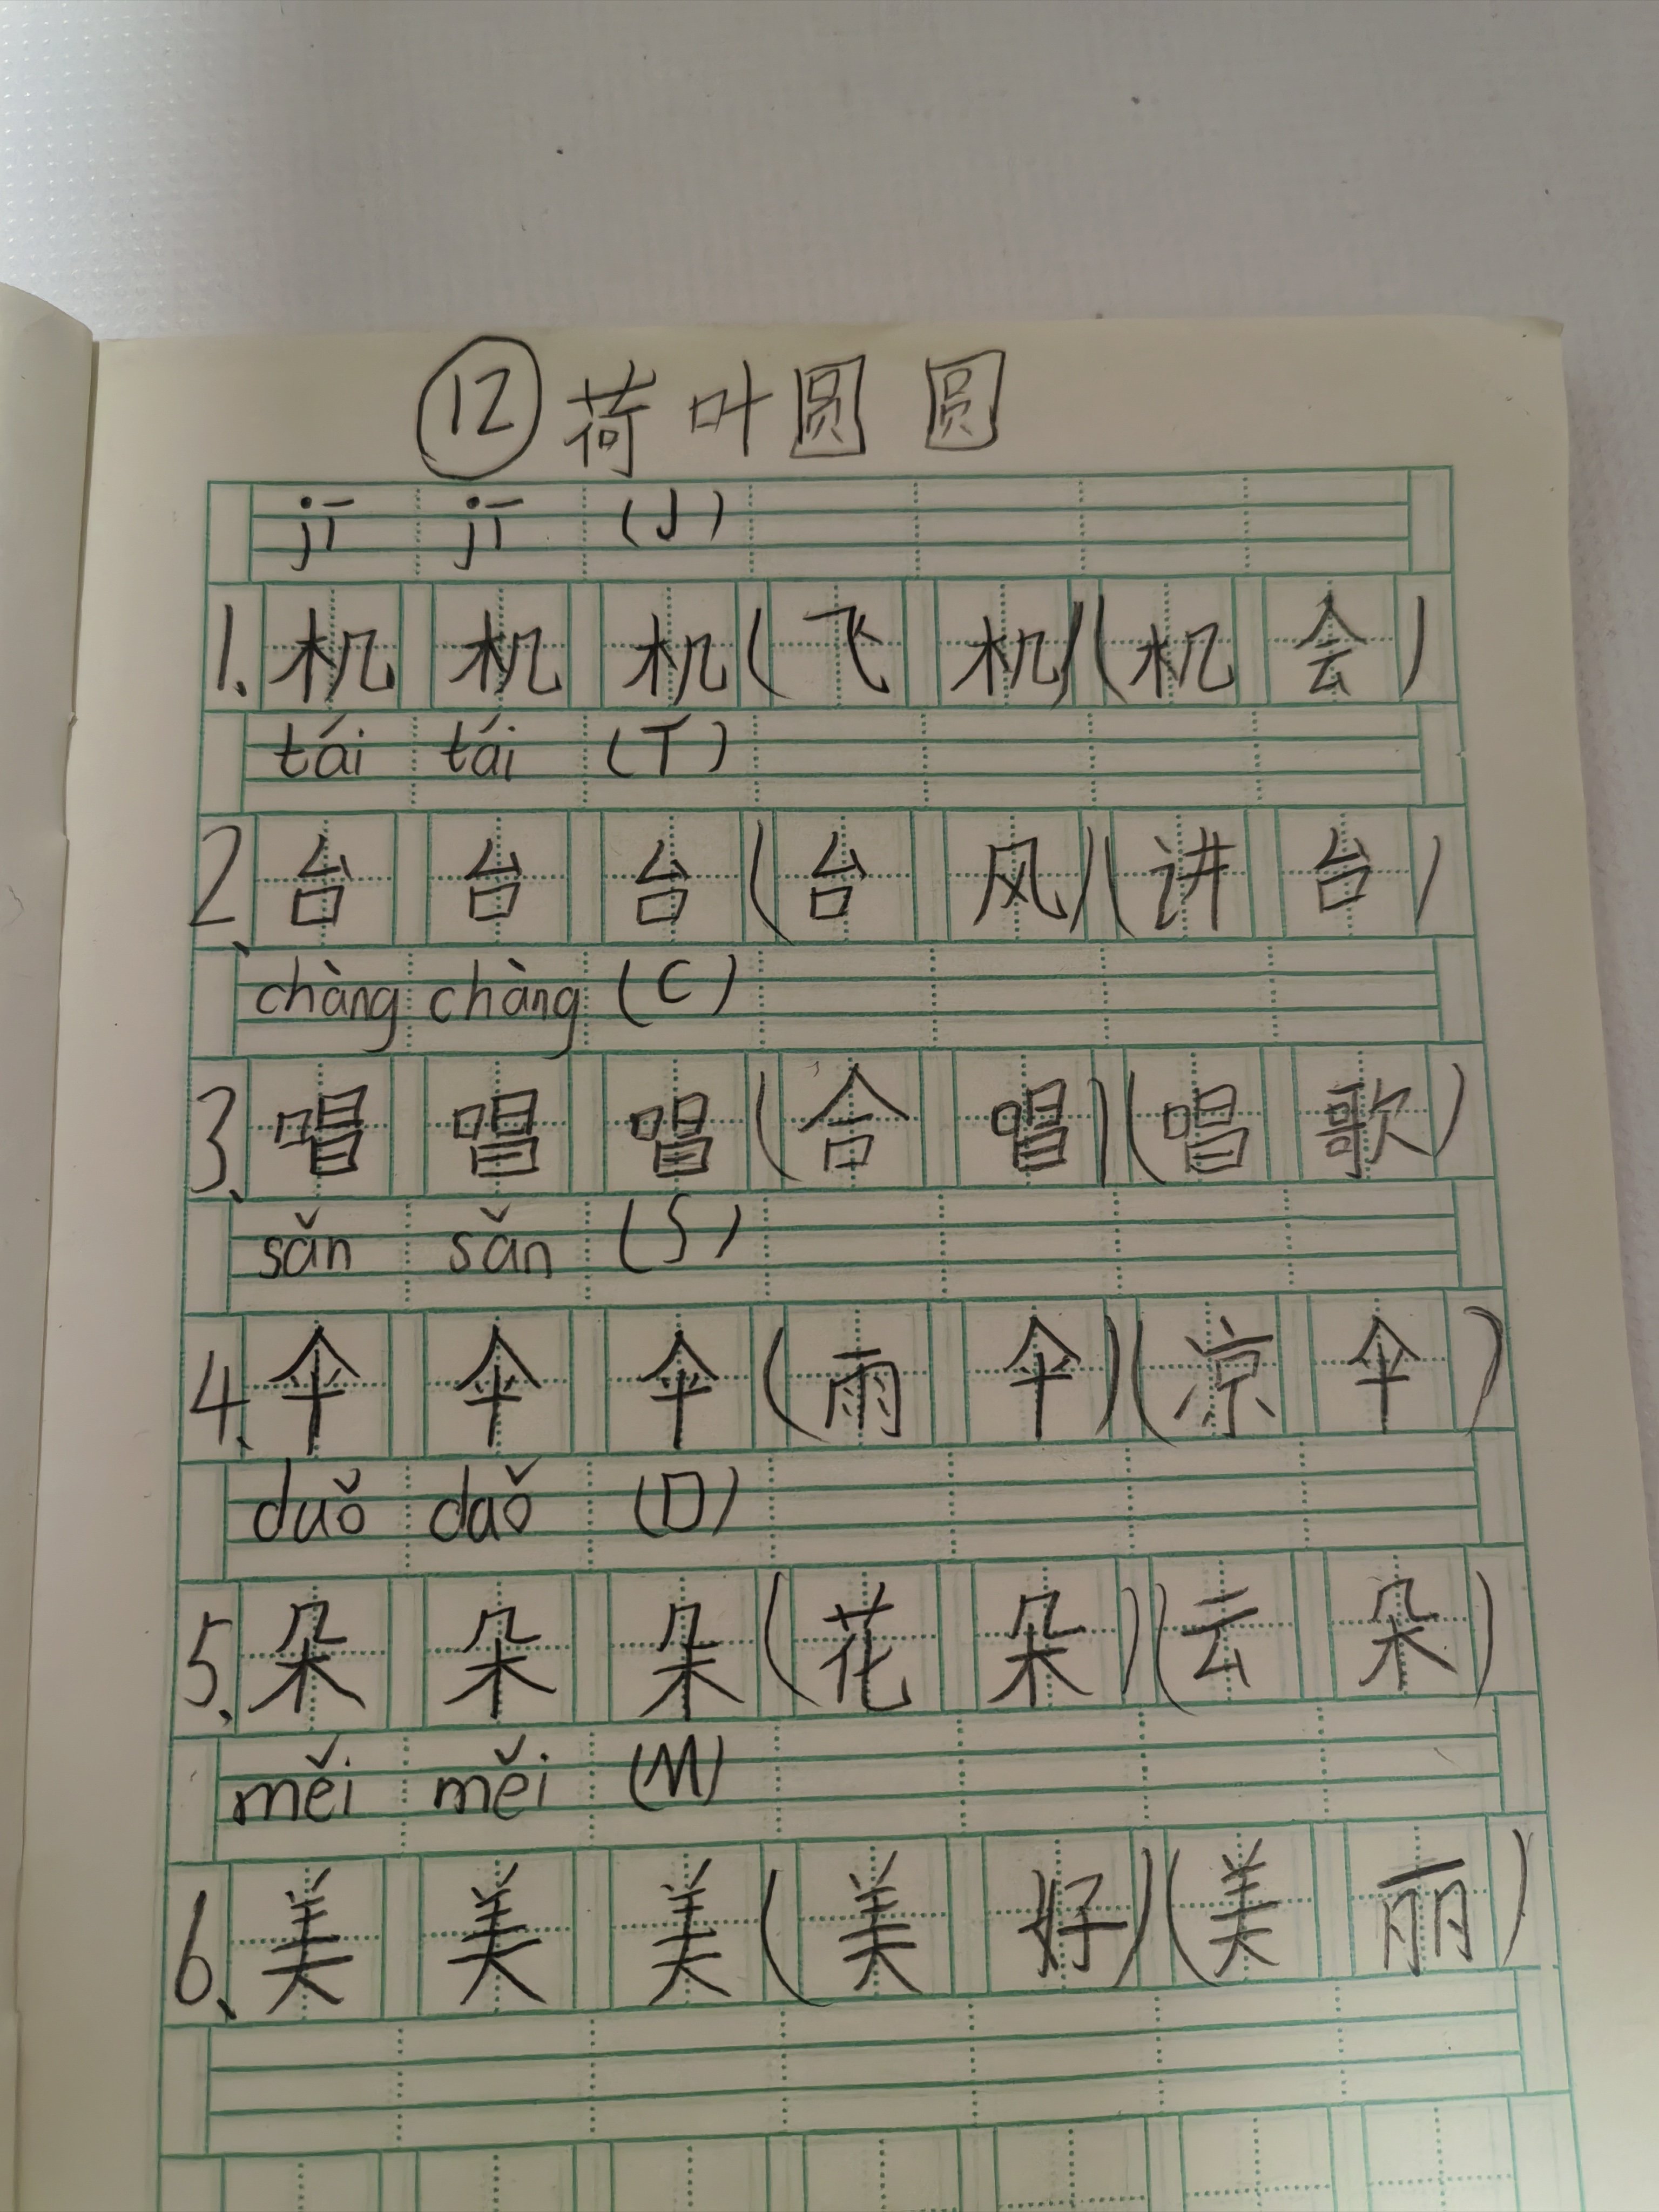 ⑫荷叶圆圆
jī jī (J)
1.机机机(飞机)(机会)
tái tái (T)
2.台台台(台风)(讲台)
chàng chàng (C)
3.唱唱唱(合唱)(唱歌)
sǎn sǎn (S)
4.伞伞伞(雨伞)(凉伞)
duǒ daǒ (D)
5.朵朵朵(花朵)(云朵)
měi měi (M)
6.美美美(美好)(美丽)